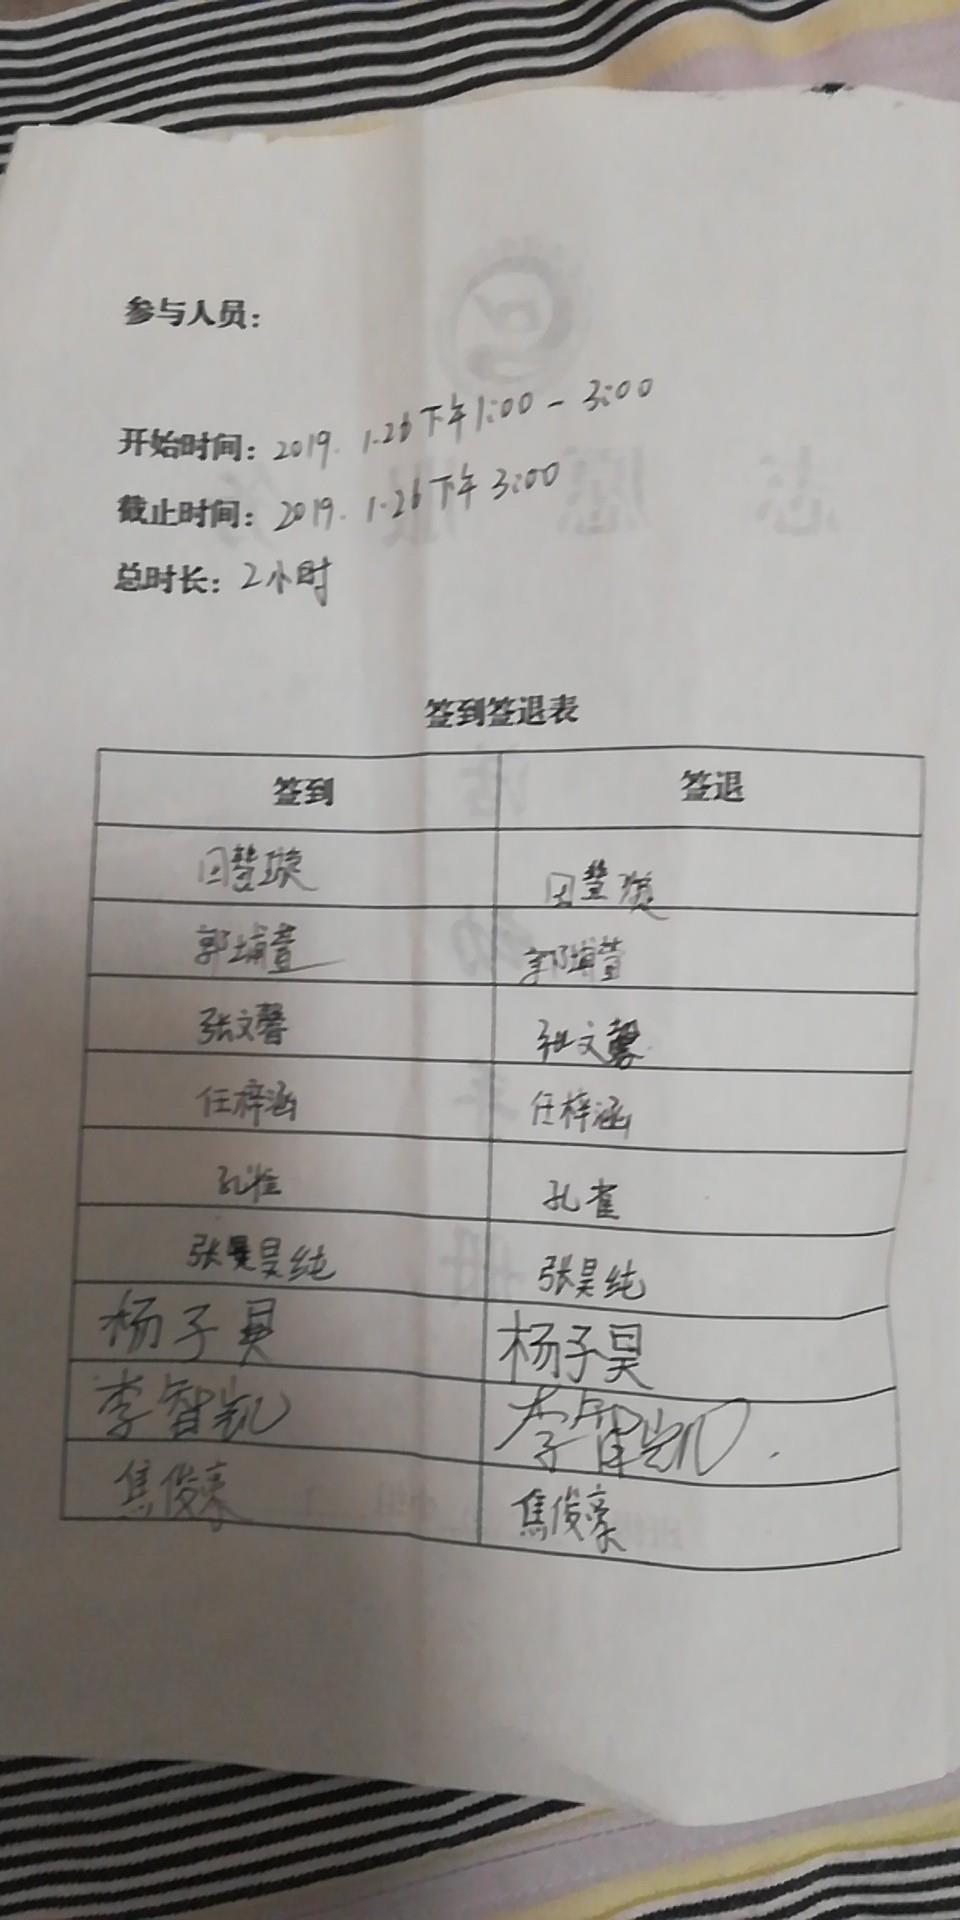 参与人员：
开始时间：2019. 1.26下午1:00-3:00
截止时间：2019. 1.26下午3:00
总时长：2小时
签到签退表
签到 签退
郭埔萱 郭埔萱
张文馨 张文馨
任梓涵 任梓涵
孔雀 孔雀
张昊纯 张昊纯
杨子昊 杨子昊
李智凯 李智凯
焦俊豪 焦俊豪